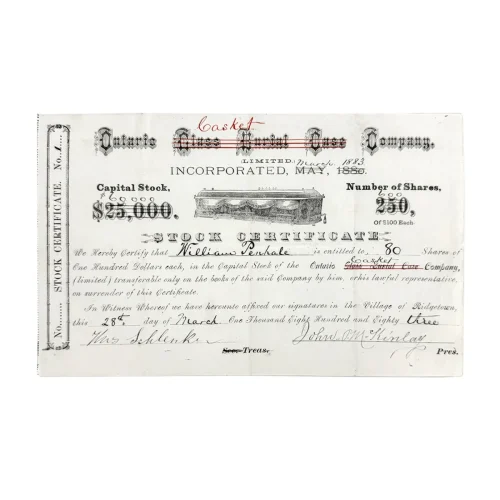 Casket.
Ontario Glass Burial Case Company,
LIMITED.
March, 1883
INCORPORATED, MAY, 1880.
Capital Stock,
$25,000,
Number of Shares,
600
250,
Of $100 Each.
STOCK CERTIFICATE
STOCK CERTIFICATE. No. 1
No.
We Hereby Certify that William Penhale is entitled to 80 Shares of
Casket
One Hundred Dollars each, in the Capital Stock of the Ontario Glass Burial Case Company,
(limited) transferable only on the books of the said Company by him, or his lawful representative,
on surrender of this Certificate.
In Witness Whereof we have hereunto affixed our signatures in the Village of Ridgetown,
this 28th day of March One Thousand Eight Hundred and Eighty three
John McKinlay
Sec-Treas. Pres.